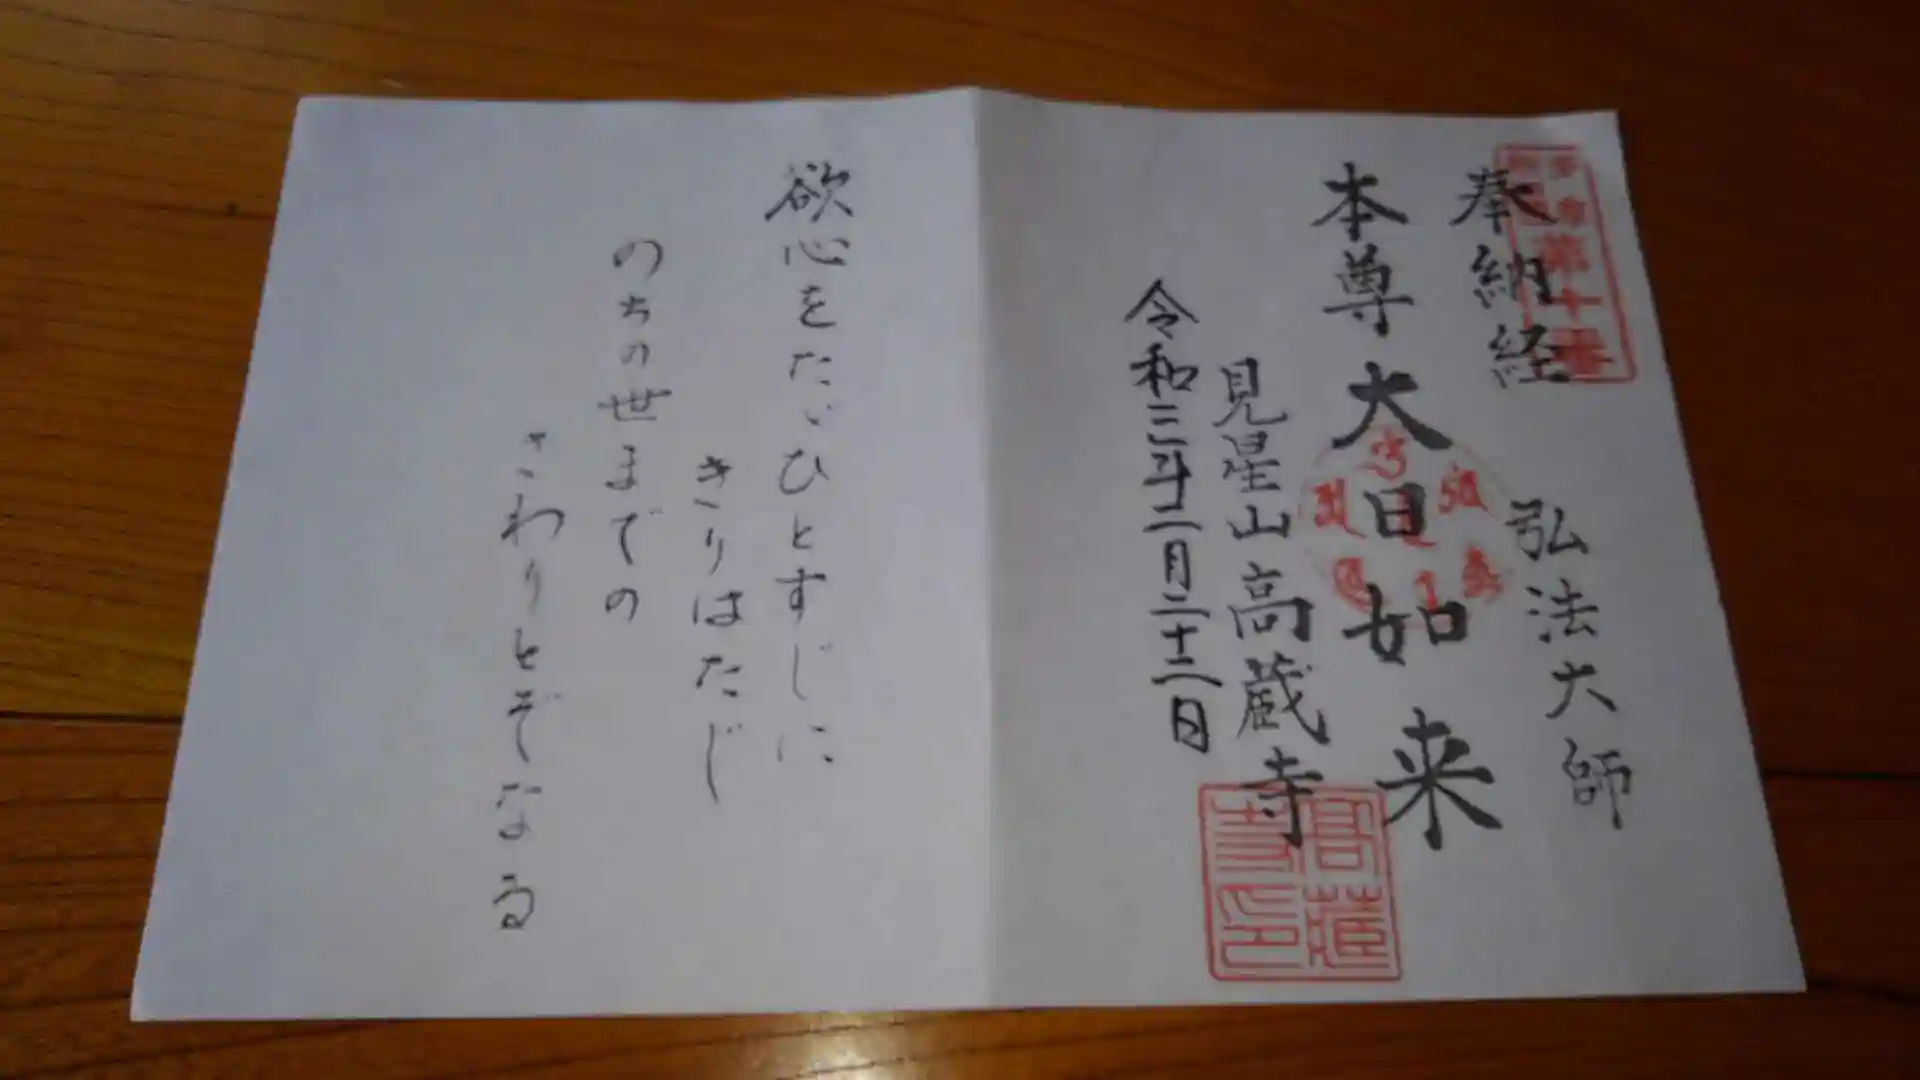 奉納経
弘法大師
本尊 大日如来
見星山高蔵寺
令和三年二月二十二日
第十番
高蔵寺印
欲心をたゞひとすじに
きりはたじ
のちの世までの
さわりとぞなる